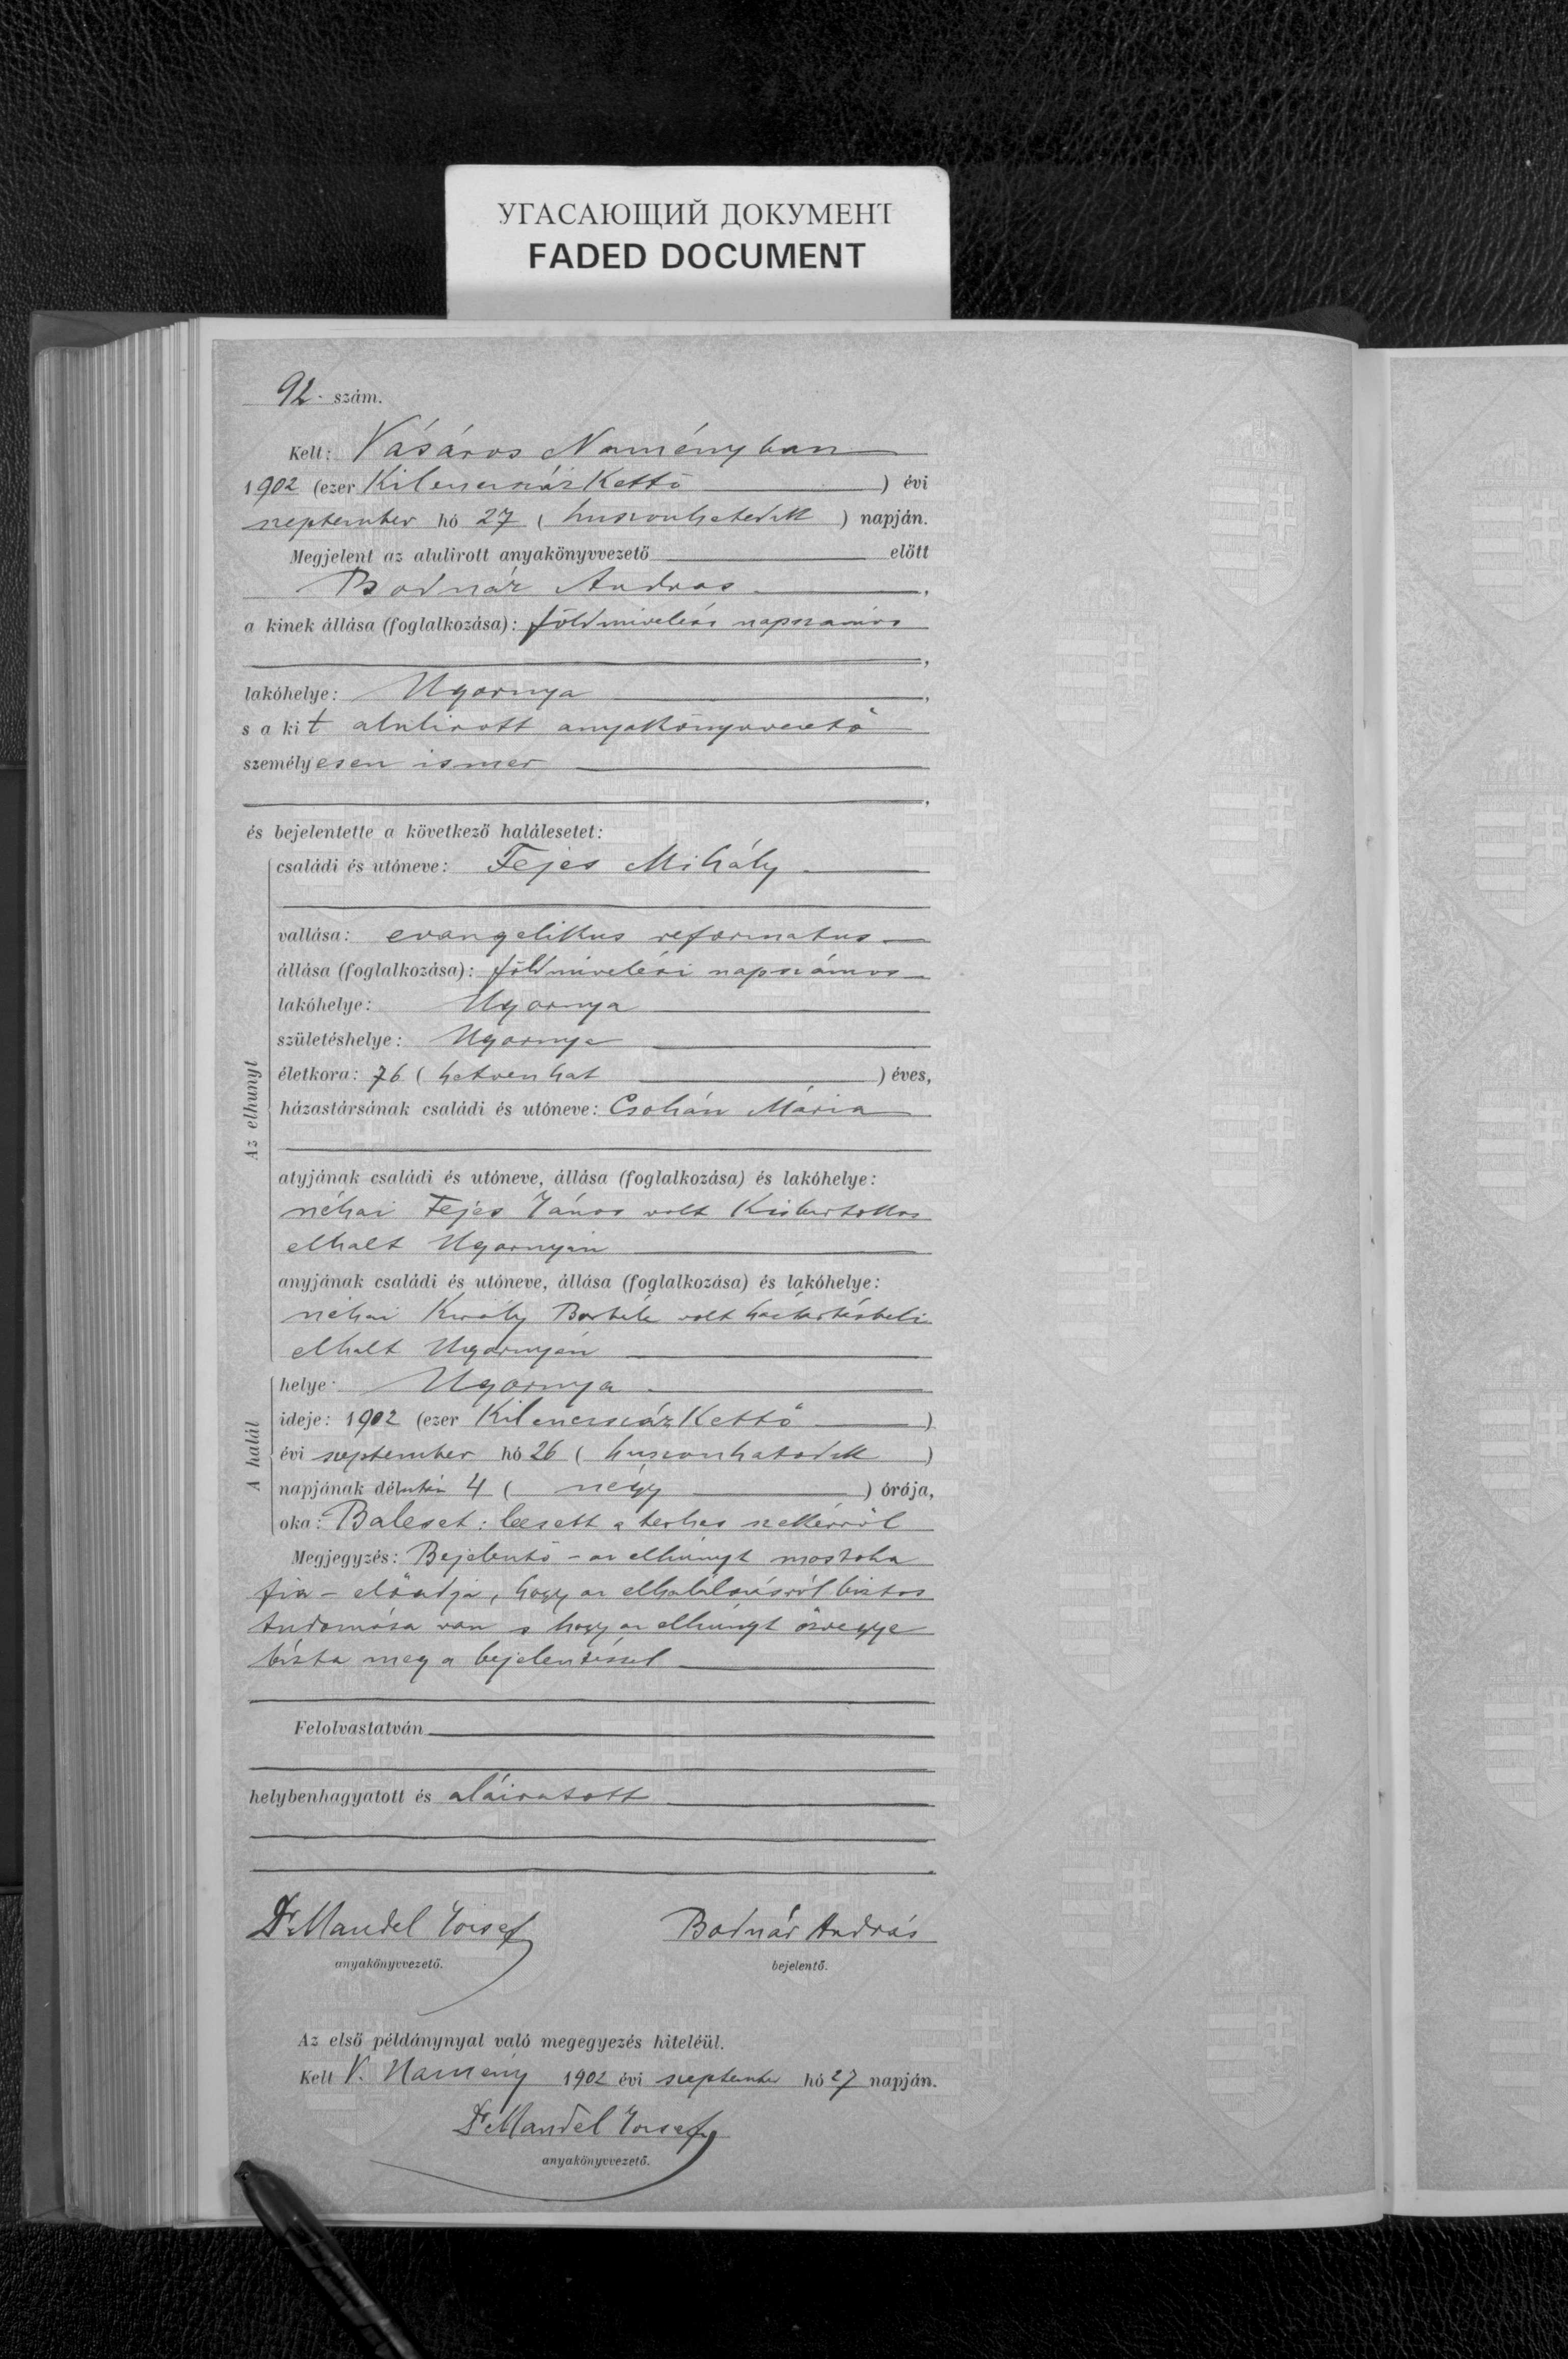 УГАСАЮЩИЙ ДОКУМЕНТ
FADED DOCUMENT
92. szám.
Kelt: Vásáros Naményban
1902 (ezer Kilenczszáz Kettő ) évi
szeptember hó 27 ( huszonhetedik ) napján.
Megjelent az alulirott anyakönyvvezető előtt
Bodnár András,
a kinek állása (foglalkozása): földmivelési napszámos
lakóhelye: Ugornya,
s a kit alulirott anyakönyvvezető
személyesen ismer
és bejelentette a következő halálesetet:
Az elhunyt
családi és utóneve: Fejes Mihály
vallása: evangelikus reformatus
állása (foglalkozása): földmivelési napszámos
lakóhelye: Ugornya
születéshelye: Ugornya
életkora: 76 ( hetvenhat ) éves,
házastársának családi és utóneve: Csohán Mária
atyjának családi és utóneve, állása (foglalkozása) és lakóhelye:
néhai Fejes János volt Kisbirtokos
elhalt Ugornyán
anyjának családi és utóneve, állása (foglalkozása) és lakóhelye:
néhai Király Borbála volt háztartásbeli
elhalt Ugornyán
A halál
helye: Ugornya
ideje: 1902 (ezer Kilenczszáz Kettő )
évi szeptember hó 26 ( huszonhatodik )
napjának délután 4 ( négy ) órája,
oka: Baleset: leesett a terhes szekérről
Megjegyzés: Bejelentő - az elhúnyt mostoha
fia - előadja, hogy az elhalálozásról biztos
tudomása van s hogy az elhúnyt özvegye
bízta meg a bejelentéssel
Felolvastatván
helybenhagyatott és aláiratott
Dr Mandel József
anyakönyvvezető.
Bodnár András
bejelentő.
Az első példánynyal való megegyezés hiteléül.
Kelt V. Namény 1902 évi szeptember hó 27 napján.
Dr Mandel József
anyakönyvvezető.